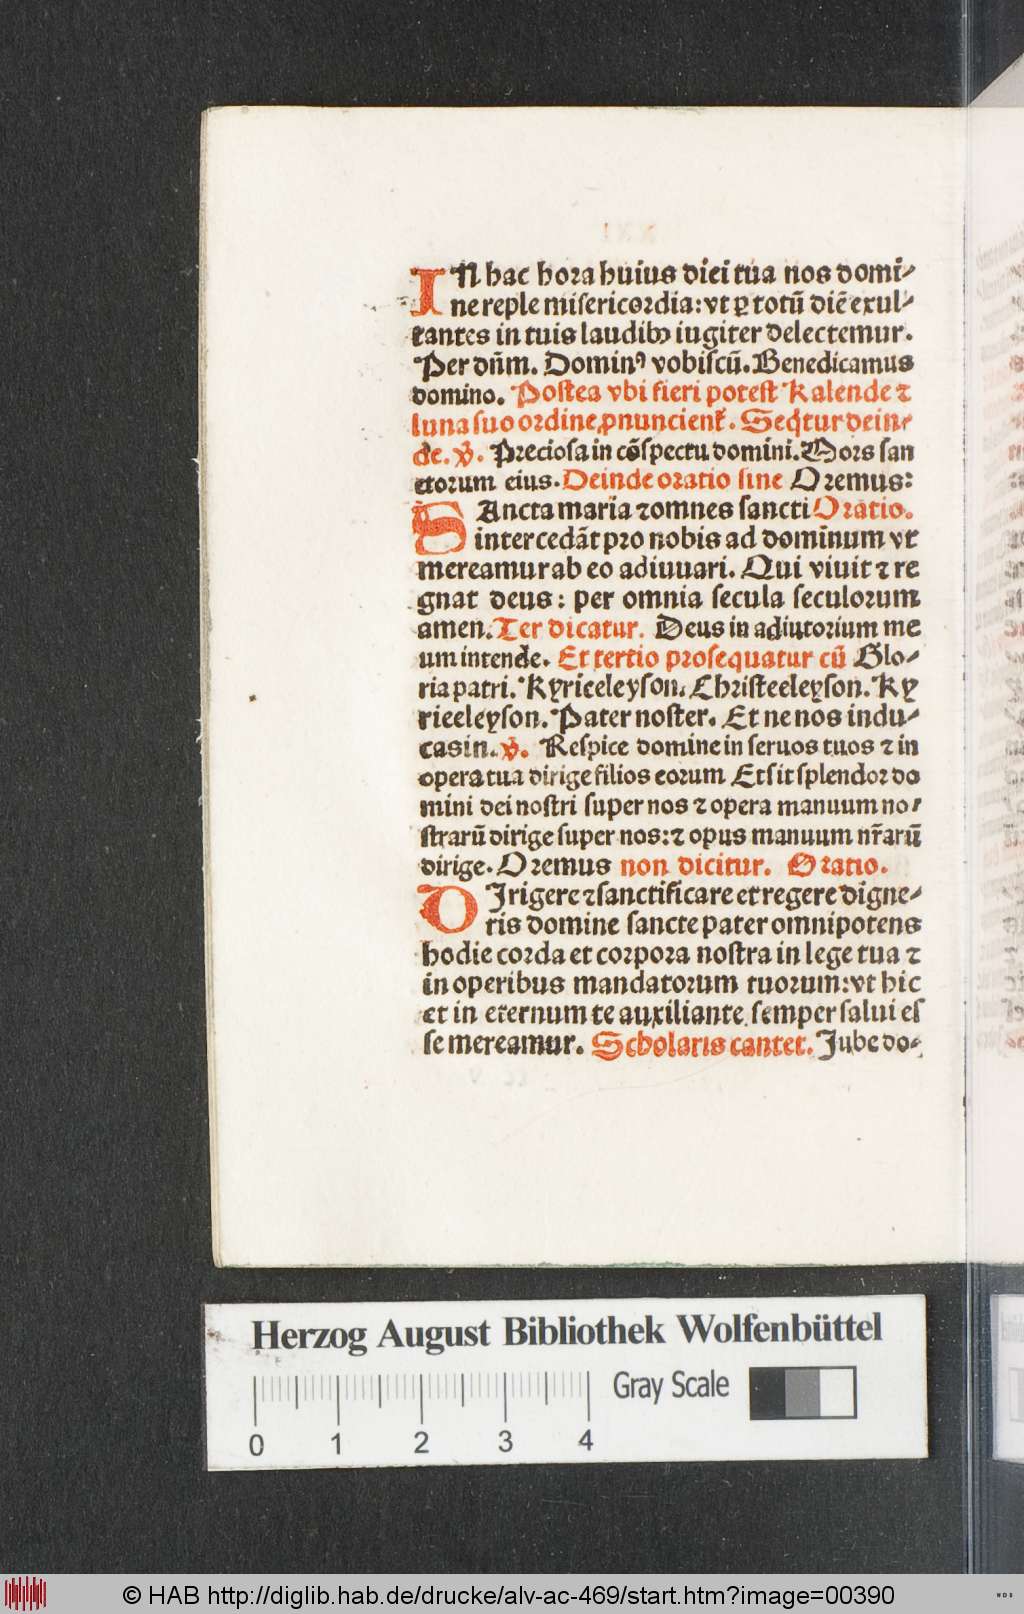 IN hac hora huius diei tua nos domi⸗
ne reple misericordia: vt ꝑ totū diē exul⸗
tantes in tuis laudibꝫ iugiter delectemur.
Per dn̄m. Dominꝰ vobiscū. Benedicamus
domino. Postea vbi fieri potest Kalende ⁊
luna suo ordine ꝓnuncient̄. Seq̄tur dein⸗
de. ℣. Preciosa in cōspectu domini. Mors san
ctorum eius. Deinde oratio sine Oremus:
SAncta maria ⁊ omnes sancti Oratio.
intercedāt pro nobis ad dominum vt
mereamur ab eo adiuuari. Qui viuit ⁊ re
gnat deus: per omnia secula seculorum
amen. Ter dicatur. Deus in adiutorium me
um intende. Et tertio prosequatur cū Glo⸗
ria patri. Kyrieeleyson. Christeeleyson. Ky
rieeleyson. Pater noster. Et ne nos indu⸗
cas in. ℣. Respice domine in seruos tuos ⁊ in
opera tua dirige filios eorum Et sit splendor do
mini dei nostri super nos ⁊ opera manuum no⸗
strarū dirige super nos: ⁊ opus manuum nr̄arū
dirige. Oremus non dicitur. Oratio.
DIrigere ⁊ sanctificare et regere digne⸗
ris domine sancte pater omnipotens
hodie corda et corpora nostra in lege tua ⁊
in operibus mandatorum tuorum: vt hic
et in eternum te auxiliante semper salui es
se mereamur. Scholaris cantet. Jube do⸗
Herzog August Bibliothek Wolfenbüttel
Gray Scale
0 1 2 3 4
© HAB http://diglib.hab.de/drucke/alv-ac-469/start.htm?image=00390